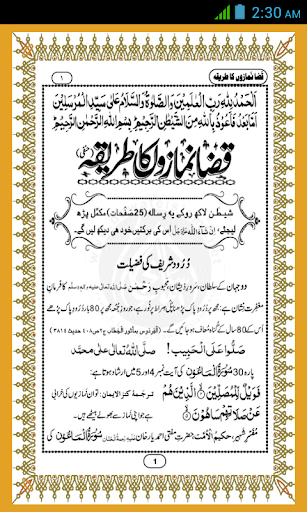 2:30 AM
قضا نمازوں کا طریقہ
۱
اَلْحَمْدُ لِلّٰهِ رَبِّ الْعٰلَمِیْنَ وَالصَّلٰوةُ وَالسَّلَامُ عَلٰی سَیِّدِ الْمُرْسَلِیْنَ
اَمَّا بَعْدُ فَاَعُوْذُ بِاللّٰهِ مِنَ الشَّیْطٰنِ الرَّجِیْمِ بِسْمِ اللّٰهِ الرَّحْمٰنِ الرَّحِیْمِ
قضا نمازوں کا طریقہ (حنفی)
شیطٰن لاکھ روکے یہ رسالہ (25صفحات) مکمّل پڑھ
لیجئے، اِنْ شَآءَاللّٰہ عَزَّوَجَلَّ اس کی برکتیں خود ہی دیکھ لیں گے۔
دُرُود شریف کی فضیلت
دو جہان کے سلطان، سرورِ ذیشان، محبوبِ رَحمٰن صلی اللہ تعالیٰ علیہ والہ وسلم کا فرمانِ
مغفرت نشان ہے، مجھ پر دُرُودِ پاک پڑھنا پُل صراط پر نور ہے، جو روزِ جمعہ مجھ پر 80 بار دُرُودِ پاک پڑھے
اُس کے 80 سال کے گناہ معاف ہو جائیں گے۔ (الفردوس بمأثور الخطاب ج۲ ص۴۰۸ حدیث ۳۸۱۴)
صَلُّوْا عَلَی الْحَبِیْب! صلَّی اللهُ تعالٰی علٰی محمَّد
پارہ 30 سُوْرَةُ الْمَاعُوْن کی آیت نمبر 4 اور 5 میں ارشاد ہوتا ہے:
فَوَیْلٌ لِّلْمُصَلِّیْنَ ۙ الَّذِیْنَ هُمْ ترجَمۂ کنز الایمان: تو ان نمازیوں کی خرابی
عَنْ صَلَاتِهِمْ سَاهُوْنَ ۙ ہے جو اپنی نماز سے بھولے بیٹھے ہیں۔
مُفَسّرِ شہیر، حکیمُ الْاُمَّت، حضرتِ مفتی احمد یار خان سُوْرَةُ الْمَاعُوْن کی
1